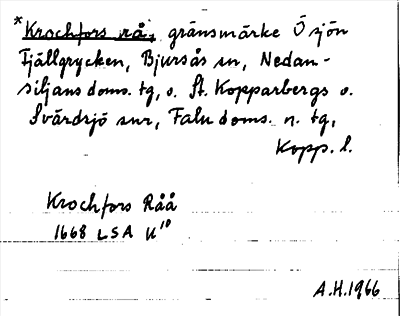 *Krochfors rå, gränsmärke Ö sjön
Fjällgrycken, Bjursås sn, Nedan-
siljans doms. tg, o. St. Kopparbergs o.
Svärdsjö snr, Falu doms. n. tg,
Kopp. l.
Krochfors Råå
1668 LSA U¹⁰
A.H. 1966